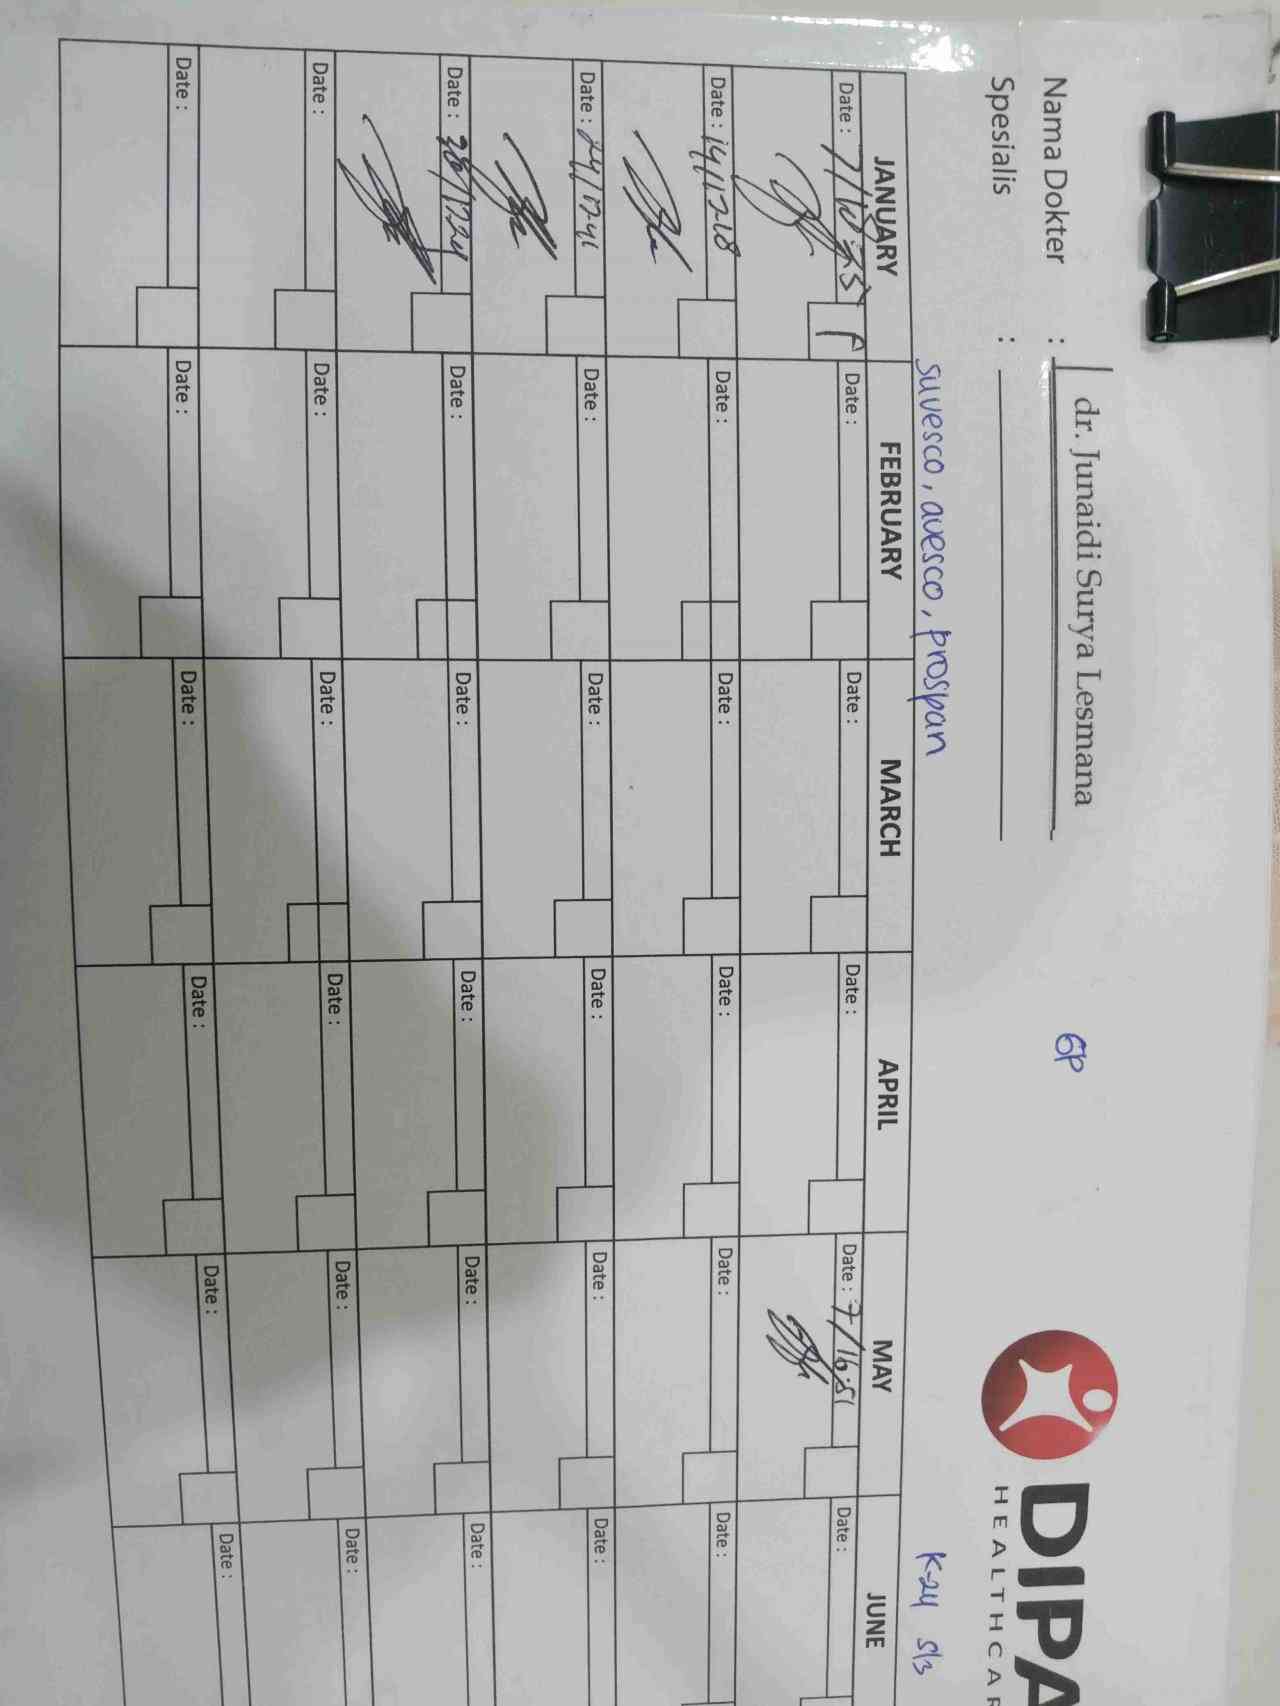 Nama Dokter : dr. Junaidi Surya Lesmana GP
DIPA
HEALTHCAR
Spesialis :
suvesco, avesco, prospan K-24 S/3
JANUARY FEBRUARY MARCH APRIL MAY JUNE
Date : Date : Date : Date : Date : 7/16.51 Date :
Date : 14/12-18 Date : Date : Date : Date : Date :
Date : 24/12-41 Date : Date : Date : Date : Date :
Date : Date : Date : Date : Date : Date :
Date : Date : Date : Date : Date : Date :
Date : Date : Date : Date : Date : Date :